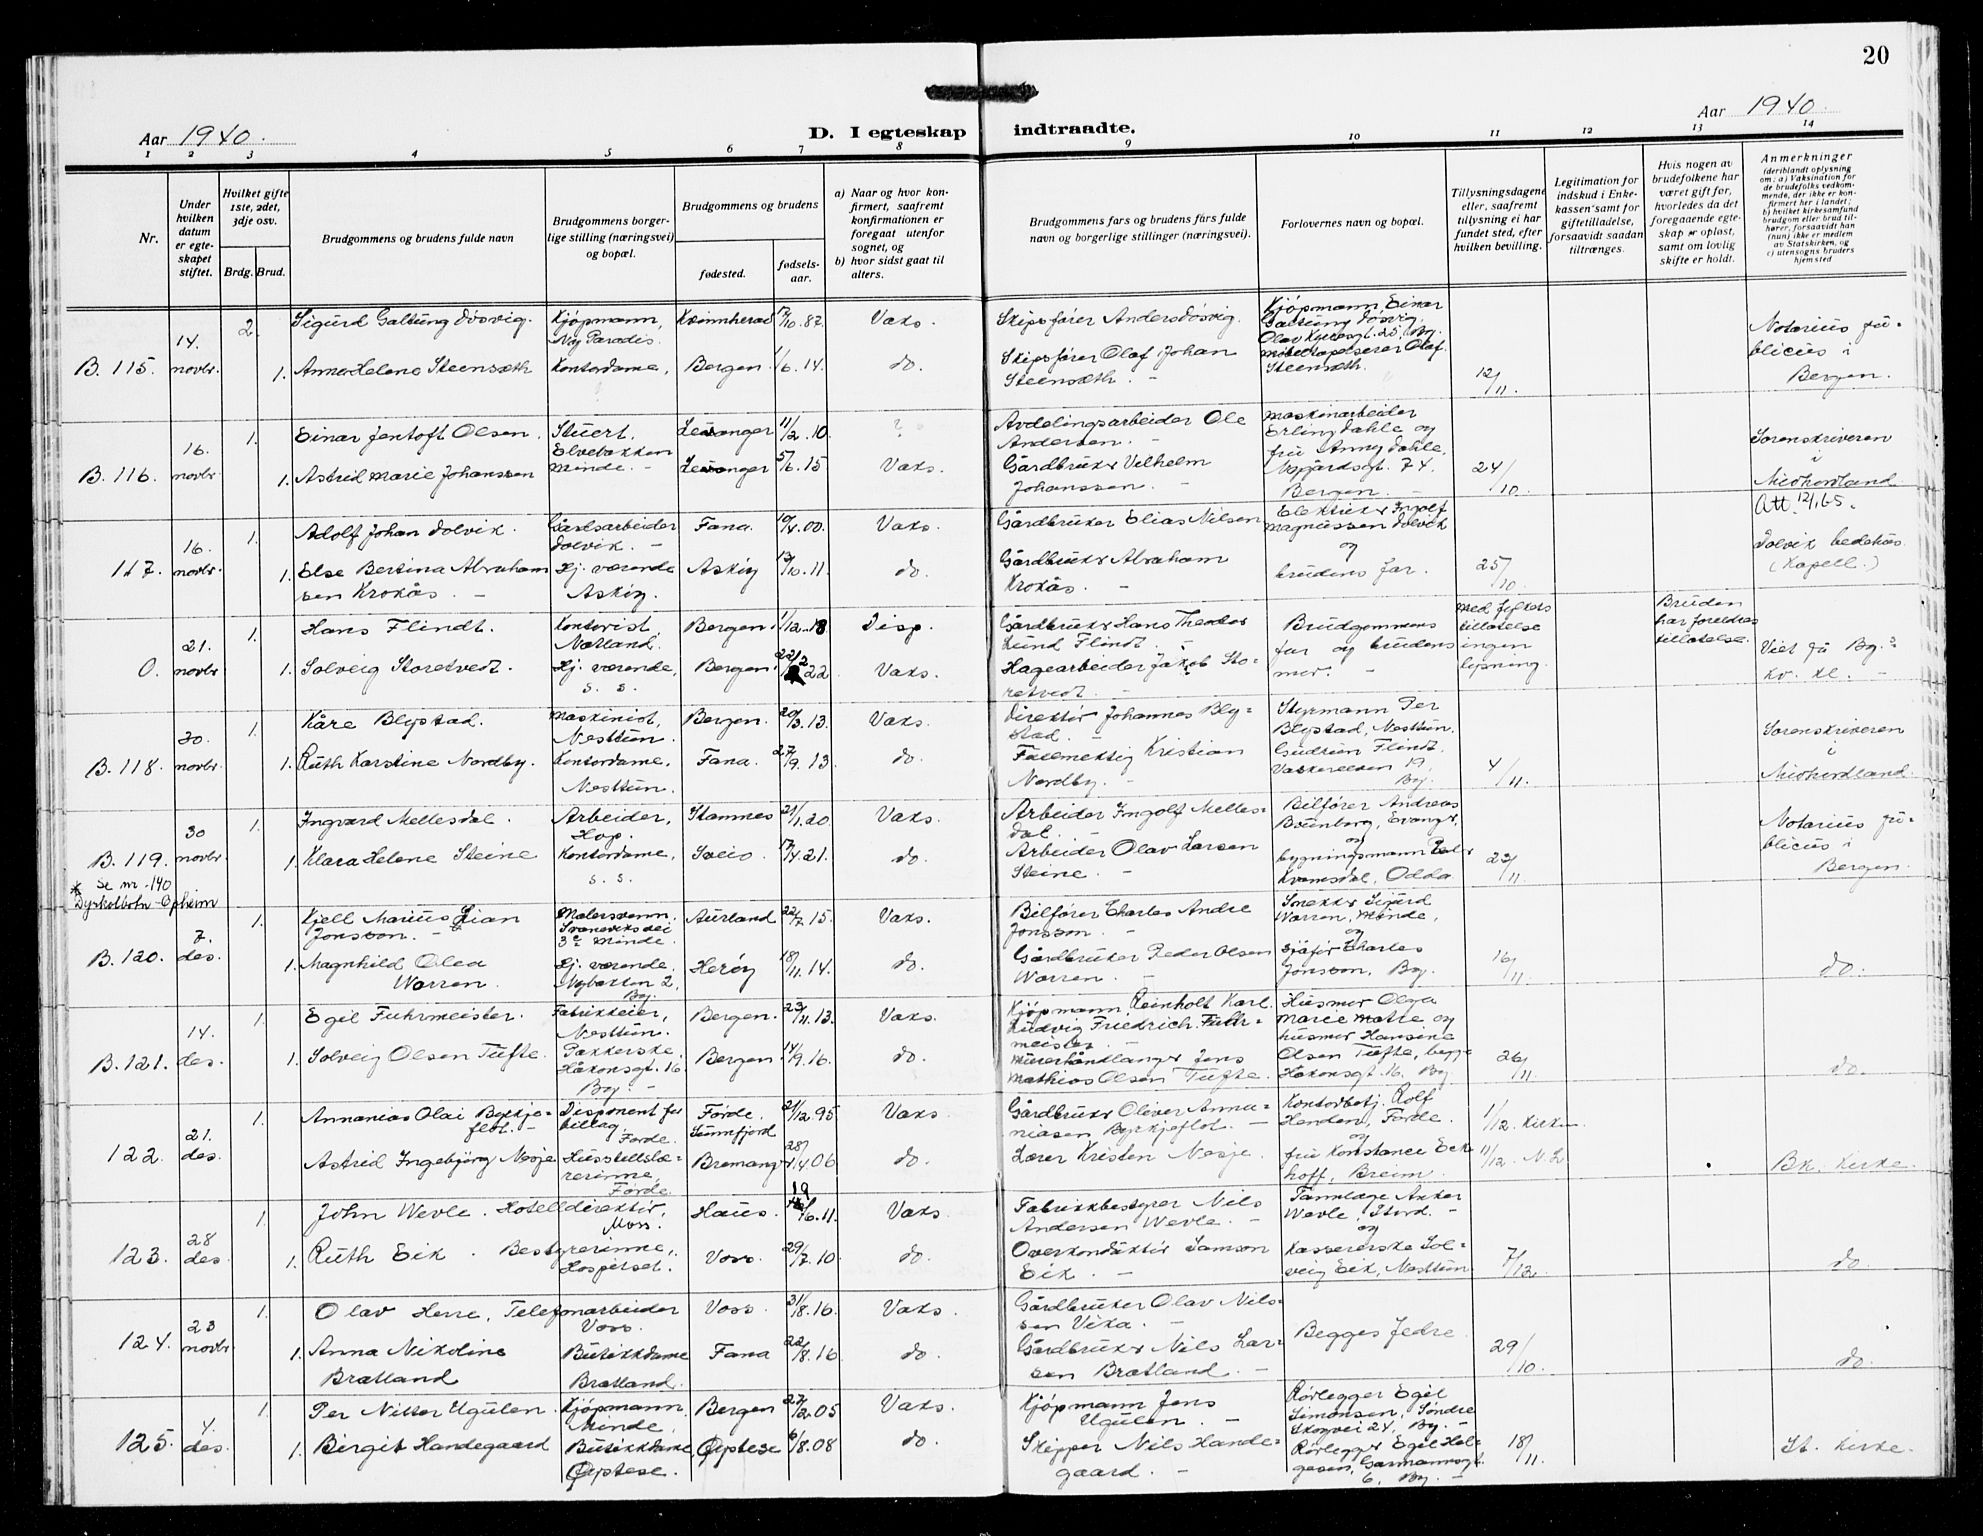 20
Aar 1940.
D. I egteskap indtraadte.
Aar 1940.
1 2 3 4 5 6 7 8 9 10 11 12 13 14
Nr.
Under hvilken datum er egteskapet stiftet.
Hvilket gifte 1ste, 2det, 3dje osv.
Brdg. Brud.
Brudgommens og brudens fulde navn
Brudgommens borgerlige stilling (næringsvei) og bopæl.
Brudgommens og brudens
fødested.
fødselsaar.
a) Naar og hvor konfirmert, saafremt konfirmationen er foregaat utenfor sognet, og
b) hvor sidst gaat til alters.
Brudgommens fars og brudens fars fulde navn og borgerlige stillinger (næringsvei).
Forlovernes navn og bopæl.
Tillysningsdagene eller, saafremt tillysning ei har fundet sted, efter hvilken bevilling.
Legitimation for indskud i Enkekassen samt for giftetilladelse, forsaavidt saadan tiltrænges.
Hvis nogen av brudefolkene har været gift før, hvorledes da det foregaaende egteskap er opløst, samt om lovlig skifte er holdt.
Anmerkninger (deriblandt oplysning om: a) Vaksination for de brudefolks vedkommende, der ikke er konfirmert her i landet; b) hvilket kirkesamfund brudgom eller brud tilhører, forsaavidt han (hun) ikke er medlem av Statskirken, og c) utensogns bruders hjemsted
B. 115. 14. novbr. 2. Sigurd Galtung Døsvig. Kjøpmann, Ny Paradis. Kvinnherad 17/10.87. Vaks. Skipsfører Anders Døsvig. Kjøpmann Einar Galtung Døsvig, Olav Kyrresgt. 25, By.
1. Anna Helene Steensæth Kontordame, Bergen. 1/6.14. do. Skipsfører Olaf Johan Steensæth. - Møbelkapelserer Olaf Steensæth. 12/11. Notarius publicus i Bergen.
B. 116. 16. novbr 1. Einar Jentoft Olsen. Stuert, Elvebakken Minde. - Levanger 11/2.10. ? Avdelingsarbeider Ole Andersen. - Maskinarbeider Erling Dahle og
1. Astrid Marie Johanssen Levanger 5/6.15 Vaks. Gårdbruker Vilhelm Johanssen. - fru Anny Dahle, Nygårdsgt. 74. Bergen. - 24/10. Sorenskriveren i Midhordland
117. 16. novbr. 1. Adolf Johan Dolvik. Gardsarbeider Dolvik. - Fana. 10/4.00. Vaks. Gårdbruker Elias Nilsen Elektriker Ingolf Magnussen Dolvik og Att. 12/1 65.
1. Else Bertina Abrahamsen Krokås. - Hj. værende Askøy. Askøy 13/10.11. do. Gårdbruker Abraham Krokås. - brudens far. 25/10. Dolvik bedehus (Kapell.)
0. 21. novbr 1. Hans Flindt. Kontorist, Natland. Bergen. 1/12.18 Disp. Gårdbruker Hans Theodor Lund Flindt. - Brudgommens far og brudens mor. - Med fylkers tillatelse ingen lysning. Bruden har foreldres tillatelse.
1. Solveig Storetvedt. Hj. værende, s. s. Bergen. 22/12 22 Vaks. Hagearbeider Jakob Storetvedt. - Viet på By.? kv. kl. -
B. 118. 30. novbr. 1. Kåre Blystad. Maskinist, Nesttun. Bergen. 20/3.13. Vaks. Direktør Johannes Blystad. - Styrmann Per Blystad, Nesttun.
1. Ruth Karstine Nordby. Kontordame, Nesttun. Fana. 27/9.13. do. Fuldmektig Kristian Nordby. - Gudrun Flindt, Vaskerelven 19, By. 4/11. Sorenskriveren i Midhordland.
B. 119. 30 novbr. 1. Ingvard Mellesdal. Arbeider, Hop. Stamnes 21/1.20. Vaks. Arbeider Ingolf Mellesdal. - Bilfører Andreas Brunborg, Evanger, og
1. Klara Helene Steine Kontordame, s. s. Sveio. 17/4.21. do. Arbeider Olav Larsen Steine. - bygningsmann Peder Kvamsdal, Odda 23/11. Notarius publicus i Bergen.
* Se nr. 140
Dyskolbotn - Opheim
B. 120. 7. des. 1. Kjell Marius Lian Jonsson. - Malersvenn, Svaneviksvei 3c Minde. Aurland 22/7.15. Vaks. Bilfører Charles Andre Jonsson. - Snekker Sigurd Warren, Minde, og
1. Magnhild Olea Warren. Hj. værende, Nybakken 2, By. Herøy 18/11.14. do. Gårdbruker Peder Olsen Warren. - Sjåfør Charles Jonsson, By. 16/11. do.
B. 121. 14. des. 1. Egil Fuhrmeister. Fabrikkeier, Nesttun. Bergen. 23/11.13. Vaks. Kjøpmann Reinholt Karl Ludvig Friedrich Fuhrmeister. - Husmor Olga Marie Matre og
1. Solveig Olsen Tufte. Pakkerske, Håkonsgt. 16 By - Bergen. 14/9.16. do. Murerhåndlanger Jens Mathias Olsen Tufte. husmor Hansine Olsen Tufte, begge Håkonsgt. 16, By. 26/11. do.
122. 21. des. 1. Annanias Olai Byrkjeflot. - Disponent for billag, Førde. Førde. Sunnfjord 21/12.95 Vaks. Gårdbruker Oliver Annaniasen Byrkjeflot. - Kontorbetj. Rolf Henden, Førde. og 1/12. Kirken
1. Astrid Ingebjørg Nesje Husstellslærerinne, Førde. Bremanger 28/4.06 do. Lærer Kristen Nesje. fru Konstance Eckhoff, Breim. 11/12. N. L. Bk. kirke.
123. 28 des. 1. John Wevle. Hotelldirektør, Voss. Haus. 19/6.11. Vaks. Fabrikkbestyrer Nils Andersen Wevle. - Tannlæge Anker Wevle, Stord. - og
1. Ruth Eik. Bestyrerinne, Hospitset. Voss. 29/7.10 do. Overkonduktør Samson Eik. - Kassererske Solveig Eik, Nesttun 7/12. do.
124. 23 novbr 1. Olav Herre, Telefonarbeider Voss. Voss. 31/8.16. Vaks. Gårdbruker Olav Nilssen Vika. - Begges fedre.
1. Anna Nikoline Bratland Butikkdame Bratland. Fana 22/8.16 do. Gårdbruker Nils Larsen Bratland. - 29/10. do.
125. 4. des. 1. Per Nitter Ugulen. Kjøpmann Minde, Bergen 27/2.05 Vaks. Kjøpmann Jens Ugulen. - Rørlegger Egil Simonsen, Søndre Skogvei 24, By. -
1. Birgit Handegaard Butikkdame, Øystese. Øystese 6/8.08 do. Skipper Nils Handegaard. - Rørlegger Egil Helgesen, Garmannsgt. 6, By. - 18/11. St. kirke.